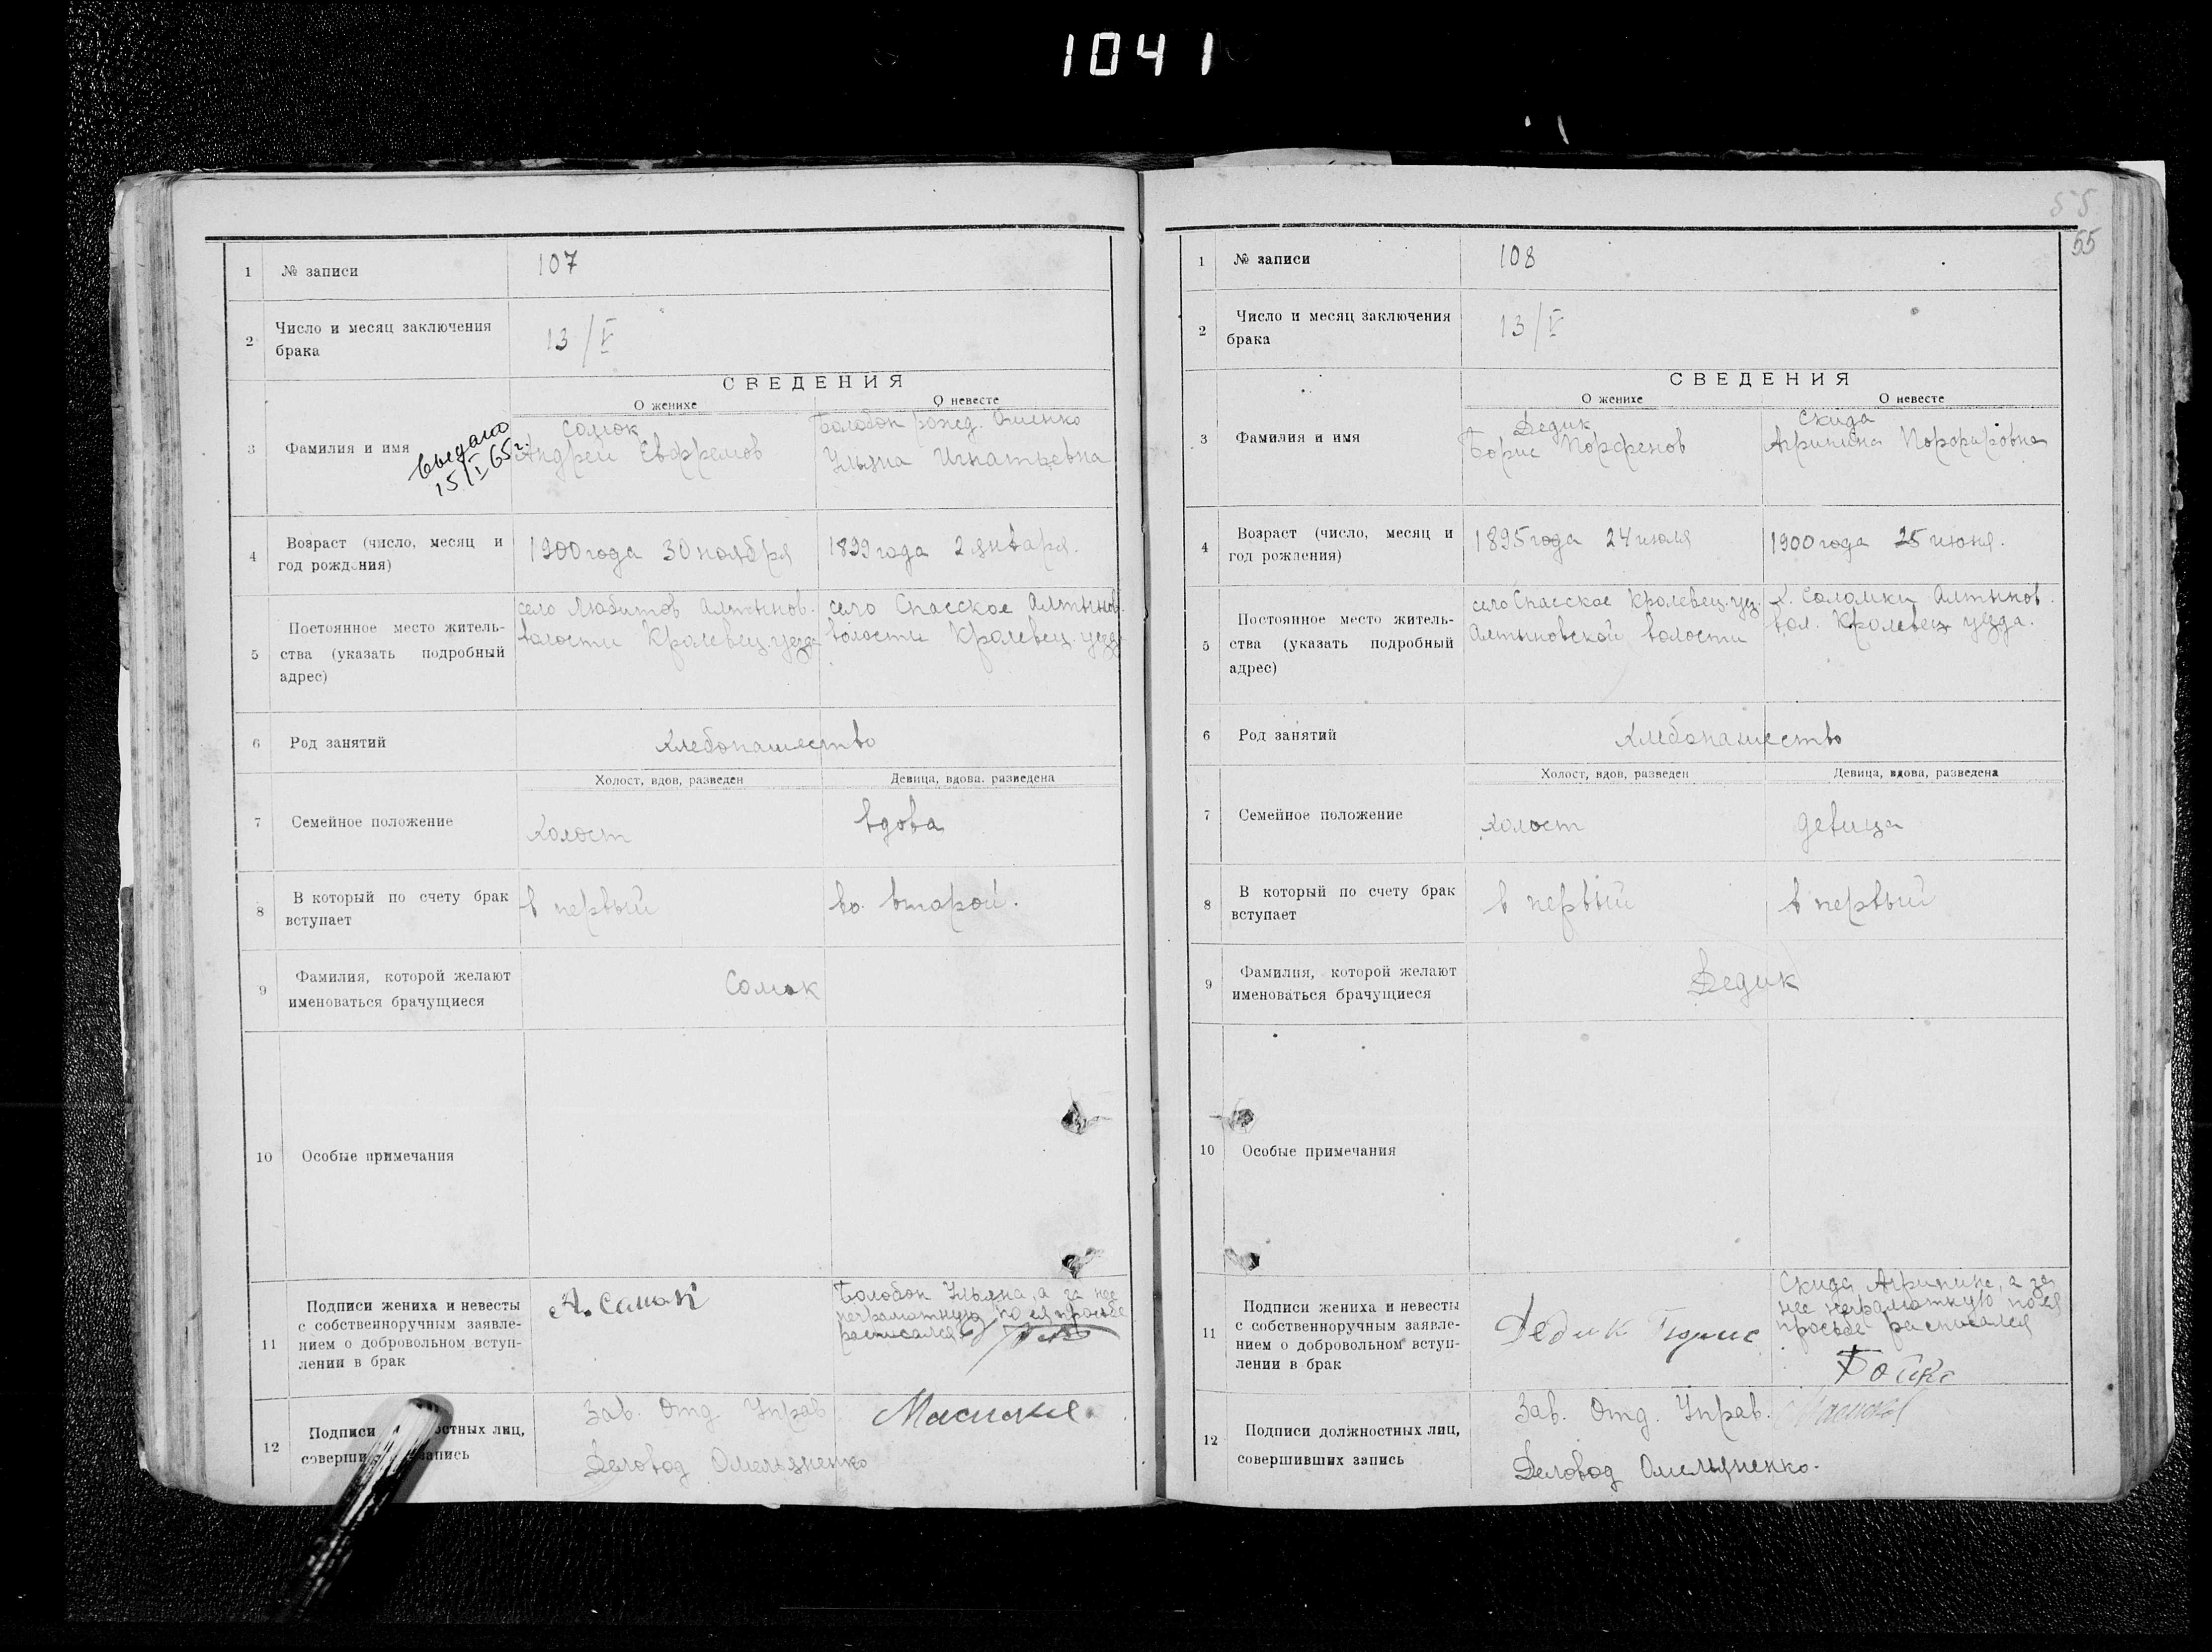 1041
1 № записи 107
2 Число и месяц заключения
брака
13/V
СВЕДЕНИЯ
О женихе О невесте
3 Фамилия и имя
выдано
15/I 65 г.
Сомок
Андрей Евфремов
Болобон рожед.
Ульяна Игнатьевна
4 Возраст (число, месяц и
год рождения)
1900 года 30 ноября
1899 года 2 января.
5 Постоянное место житель-
ства (указать подробный
адрес)
село Любитов Алтынов.
волости Кролевец. уезда
село Спасское Алтынов.
волости Кролевец. уезда
6 Род занятий
хлебопашество
Холост, вдов, разведен Девица, вдова, разведена
7 Семейное положение
холост
вдова
8 В который по счету брак
вступает
в первый
во второй.
9 Фамилия, которой желают
именоваться брачущиеся
Сомок
10 Особые примечания
11 Подписи жениха и невесты
с собственноручным заявле-
нием о добровольном вступ-
лении в брак
А. Самок
Болобон Ульяна, а за нее
неграмотную по ея просьбе
расписался
12 Подписи лиц,
запись
Зав. Отд. Управ
Деловод Омельяненко
55
55
1 № записи 108
2 Число и месяц заключения
брака
13/V
СВЕДЕНИЯ
О женихе О невесте
3 Фамилия и имя
Дедик
Борис Порфенов
Скида
Агрипина Порфировна
4 Возраст (число, месяц и
год рождения)
1895 года 24 июля
1900 года 25 июня.
5 Постоянное место житель-
ства (указать подробный
адрес)
село Спасское Кролевец. уез.
Алтыновской волости
х. Соломки Алтынов.
вол. Кролевец уезда.
6 Род занятий
хлебопашество
Холост, вдов, разведен Девица, вдова, разведена
7 Семейное положение
холост
девица
8 В который по счету брак
вступает
в первый
в первый
9 Фамилия, которой желают
именоваться брачущиеся
Дедик
10 Особые примечания
11 Подписи жениха и невесты
с собственноручным заявле-
нием о добровольном вступ-
лении в брак
Дедик Борис
Скида Агрипина, а за
нее неграмотную по ея
просьбе расписался
Бойко
12 Подписи должностных лиц,
совершивших запись
Зав. Отд. Управ.
Деловод Омельяненко.